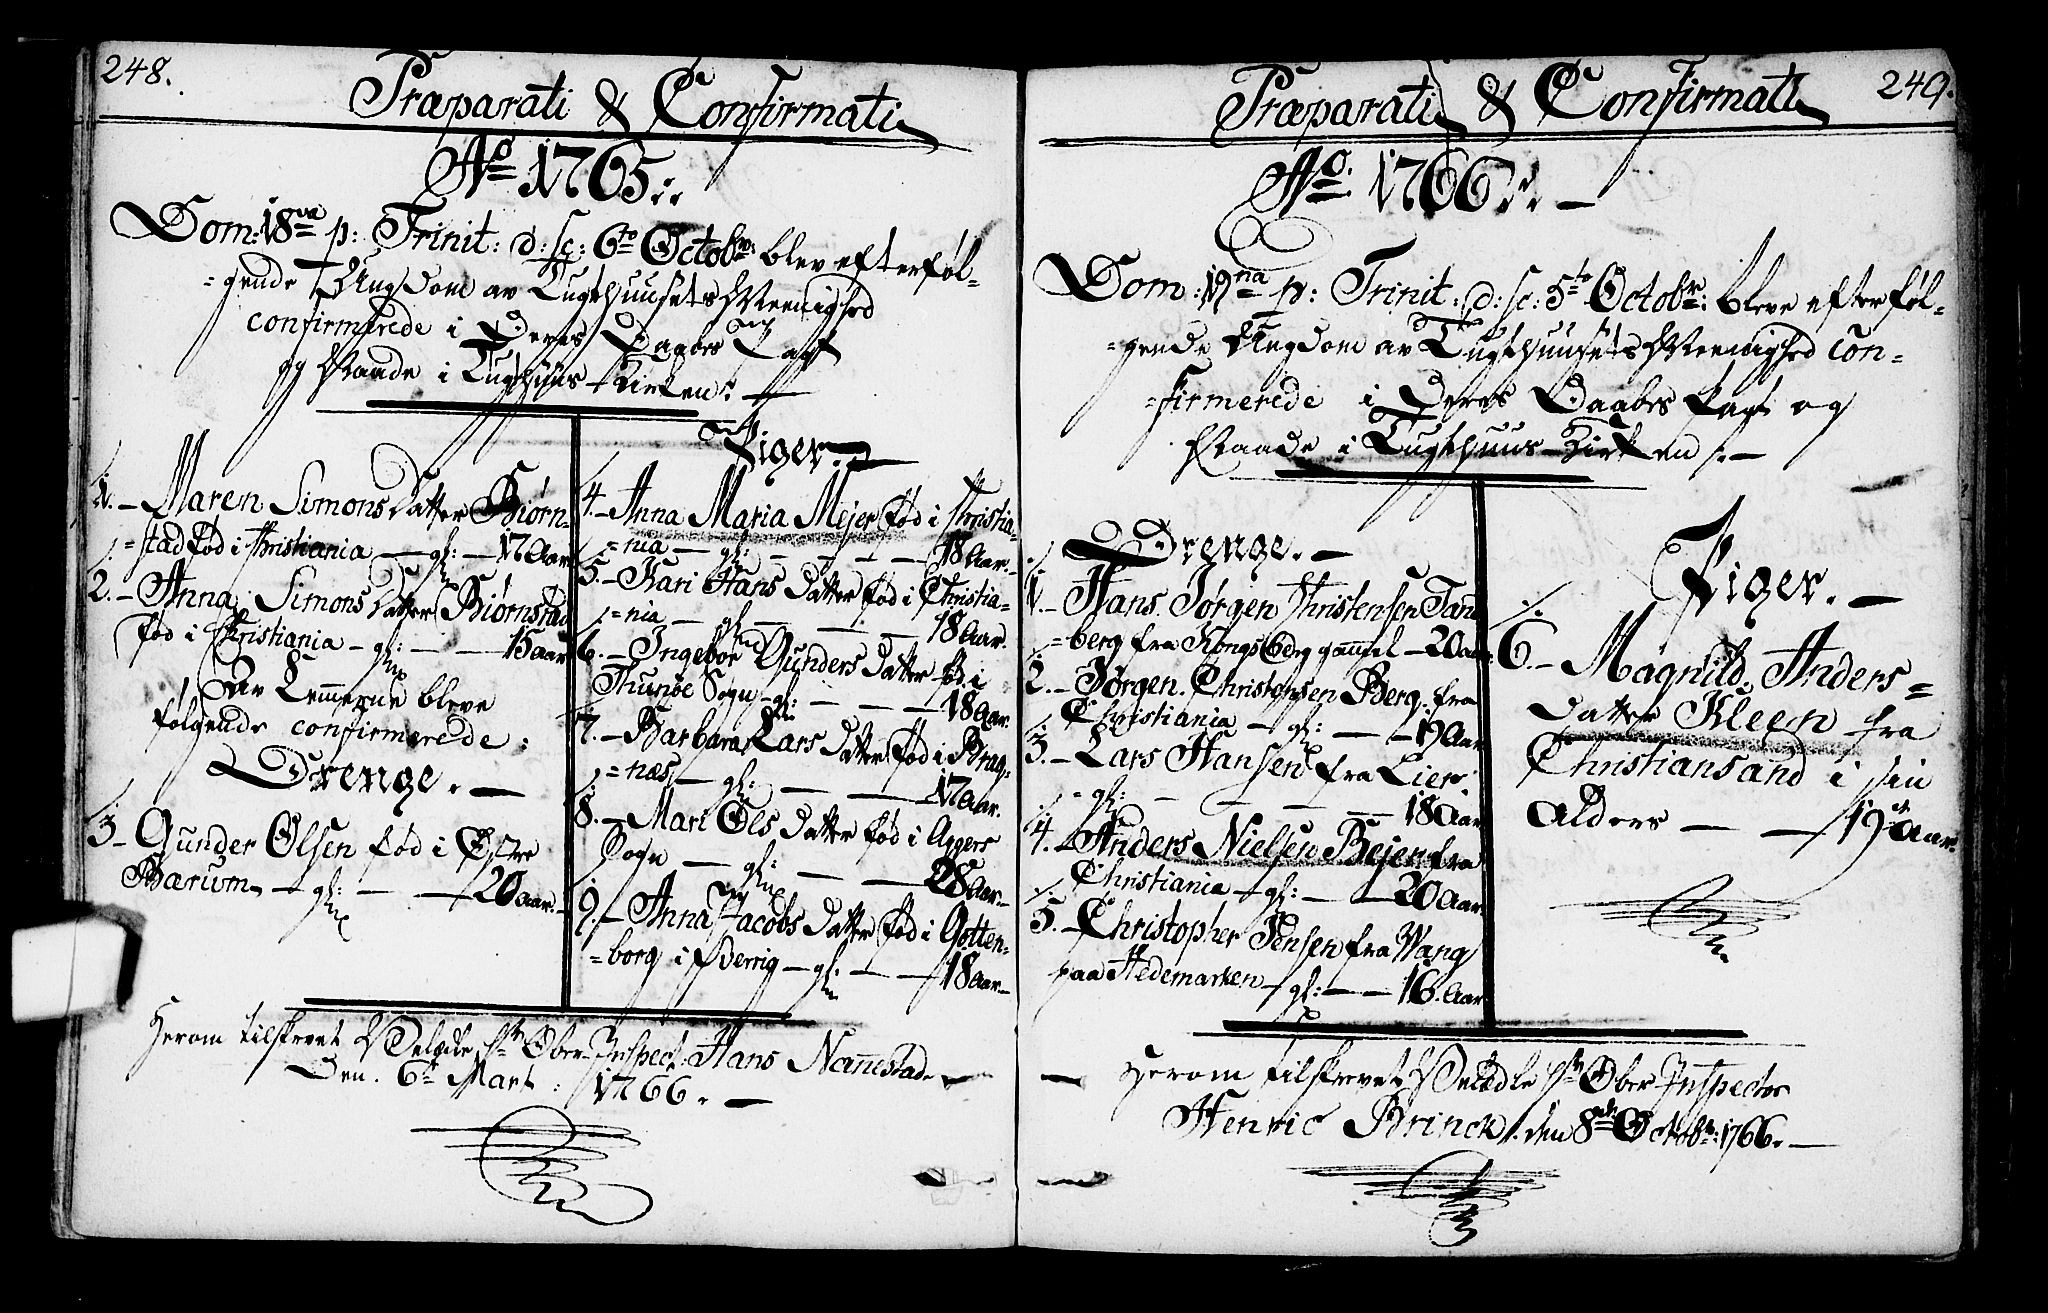 248.
Præparati & Confirmati
Ao 1765.
Dom: 18va p: Trinit: d: sc: 6to Octobr: blev efterføl-
=gende Ungdom av Tugthuusets Meenighed
confirmerede i Deres Daabes Pagt
og Naade i Tugthuus-Kirken:
1. Maren Simons Datter Biørn-
=stad fød i Christiania — gl: — 17 Aar
2. Anna Simons Datter Biørnstad
fød i Christiania — gl: — 15 aar
Av Lemmerne bleve
følgende confirmerede:
Drenge.
3 Gunder Olsen fød i Østre
Bærum — gl: — 20 aar.
Piger.
4. Anna Maria Mejer fød i Christia-
=nia — gl: — 18 Aar.
5. Kari Hans Datter fød i Christia-
=nia — gl: — 18 Aar.
6. Ingebor Gunders Datter fød i
Thunøe Sogn — gl: — 18 Aar.
7. Barbara Lars Datter fød i Brag-
=næs — gl: — 17 Aar.
8. Mari Ols Datter fød i Aggers
Sogn — gl: — 28 Aar.
9. Anna Jacobs Datter fød i Gotten-
=borg i Sverrig — gl: — 18 Aar.
Herom tilskrevet Velædle Hr Ober-Inspect: Hans Nannestad
Den. 6te Mart: 1766.
249.
Præparati & Confirmati
Ao. 1766.
Dom: 19na p: Trinit: d: sc: 5to Octobr: bleve efterføl-
=gende Ungdom av Tugthuusets Meenighed con-
=firmerede i Deres Daabes Pagt og
Naade i Tugthuus-Kirken.
Drenge.
1. Hans Jørgen Christensen Tan-
=berg fra Kongsberg gammel — 20 aar
2. Jørgen Christensen Berg fra
Christiania — gl: — 19 Aar
3. Lars Hansen fra Lier
gl: — 18 Aar
4. Anders Nielsen Bejer fra
Christiania — gl: — 20 Aar
5. Christopher Jensen fra Wang
paa Hedemarken — gl: — 16. Aar
Piger.
6. Magnild Anders-
Datter Kleen fra
Christiansand i sin
Alders — 19de Aar.
Herom tilskrevet Velædle Hr Ober Inspector
Henric Brinck, den 8de Octobr: 1766.